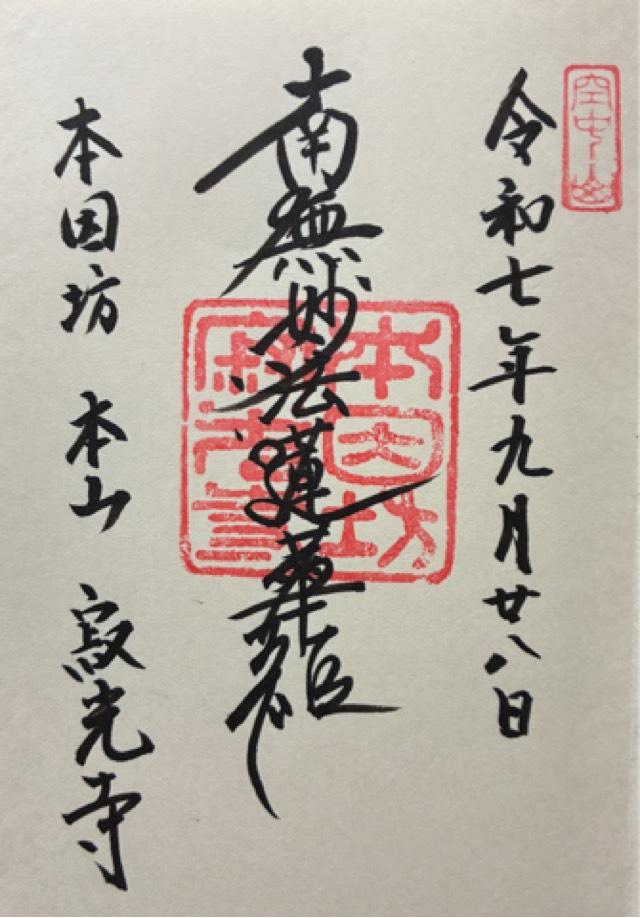 空中山
令和七年九月廿八日
南無妙法蓮華経
本因坊
寂光寺
本因坊 本山 寂光寺